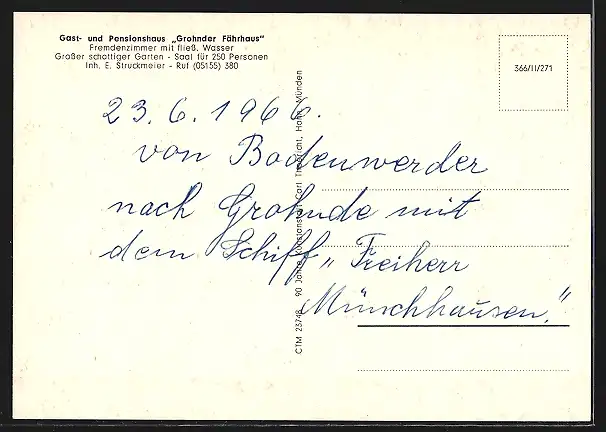 Gast- und Pensionshaus „Grohnder Fährhaus"
Fremdenzimmer mit fließ. Wasser
Großer schattiger Garten - Saal für 250 Personen
Inh. E. Struckmeier - Ruf (05155) 380
366/II/271
23. 6. 1966.
von Bodenwerder
nach Grohnde mit
dem Schiff „Freiherr
Münchhausen."
CTM 23748 90 Jahre Kunstanstalt Carl Thoericht, Hann. Münden